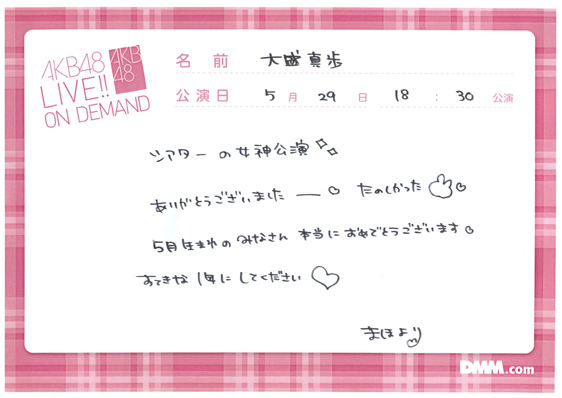 AKB48
LIVE!!
ON DEMAND
AKB
48
名前 大盛真歩
公演日 5月29日 18:30公演
シアターの女神公演
ありがとうございましたー たのしかった
5月生まれのみなさん 本当におめでとうございます
すてきな1年にしてください♡
まほより
DMM.com